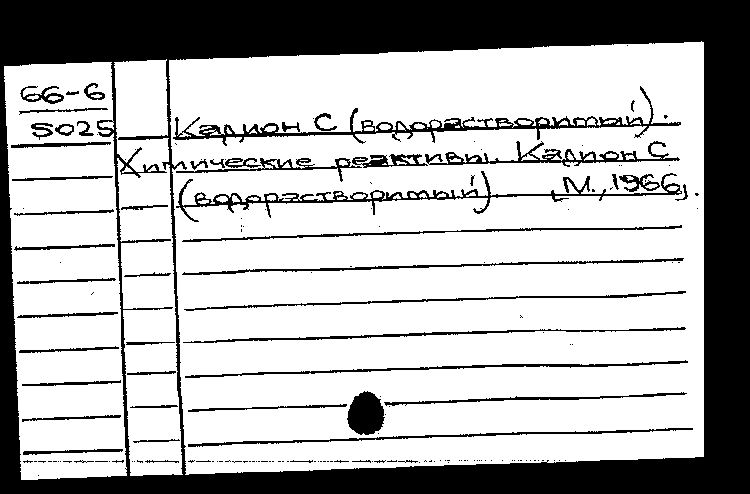 66-6
5025
Кадион С (водорастворимый).
Химические реактивы. Кадион С
(водорастворимый) [М., 1966].